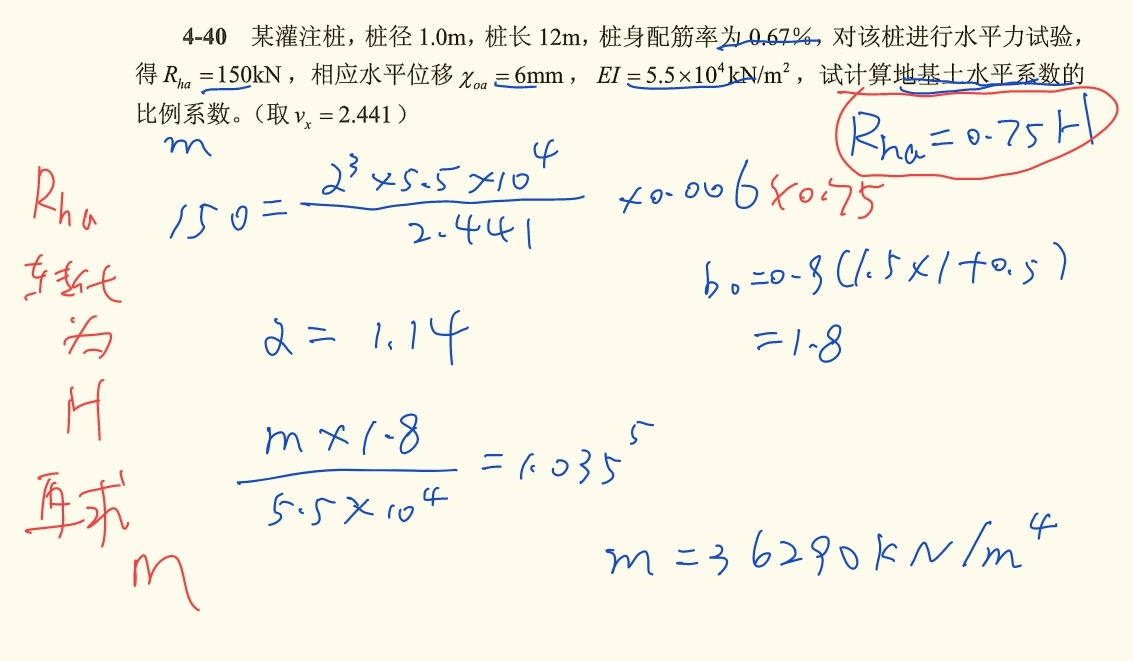 4-40 某灌注桩，桩径 1.0m，桩长 12m，桩身配筋率为 0.67%，对该桩进行水平力试验，
得 Rha =150kN，相应水平位移 χoa = 6mm，EI = 5.5×10⁴kN/m²，试计算地基土水平系数的
比例系数。（取 νx = 2.441）
m
Rha = 0.75H
150 = 2³×5.5×10⁴ / 2.441 ×0.006×0.75
Rha
转换
为
H
再求
m
b₀=0.9(1.5×1+0.5)
=1.8
2 = 1.14
m×1.8 / 5.5×10⁴ = 1.035⁵
m = 36290kN/m⁴